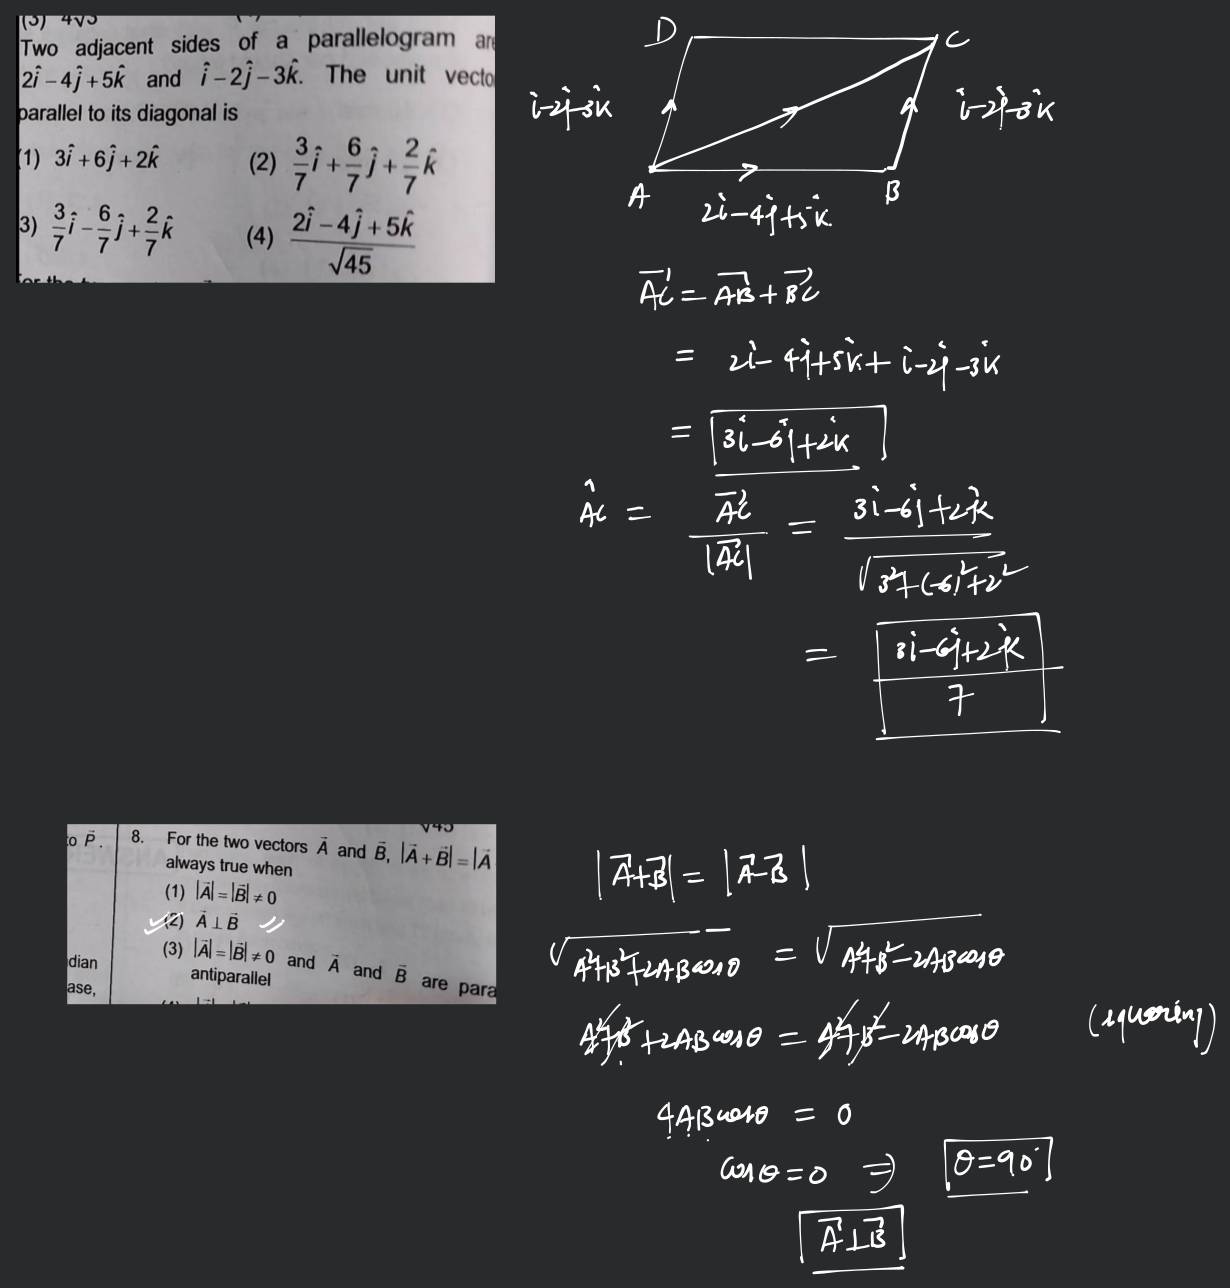 (3) 4√3
Two adjacent sides of a parallelogram are
2î – 4ĵ + 5k̂ and î – 2ĵ – 3k̂. The unit vecto
parallel to its diagonal is
1) 3î + 6ĵ + 2k̂ (2) 3/7 î + 6/7 ĵ + 2/7 k̂
3) 3/7 î – 6/7 ĵ + 2/7 k̂ (4) (2î – 4ĵ + 5k̂)/√45
D C
î-2ĵ-3k̂ î-2ĵ-3k̂
A B
2î-4ĵ+5k̂
A⃗C = A⃗B + B⃗C
= 2î-4ĵ+5k̂ + î-2ĵ-3k̂
= 3î-6ĵ+2k̂
ÂC = A⃗C/|A⃗C| = (3î-6ĵ+2k̂)/√(3²+(-6)²+2²)
= (3î-6ĵ+2k̂)/7
√45
to P⃗.
8. For the two vectors A⃗ and B⃗, |A⃗ + B⃗| = |A⃗
always true when
(1) |A⃗| = |B⃗| ≠ 0
(2) A⃗ ⊥ B⃗
(3) |A⃗| = |B⃗| ≠ 0 and A⃗ and B⃗ are para
antiparallel
dian
ase,
|A⃗+B⃗| = |A⃗-B⃗|
√(A²+B²+2ABcosθ) = √(A²+B²-2ABcosθ)
A²+B²+2ABcosθ = A²+B²-2ABcosθ (squaring)
4ABcosθ = 0
cosθ=0 ⇒ θ=90°
A⃗⊥B⃗